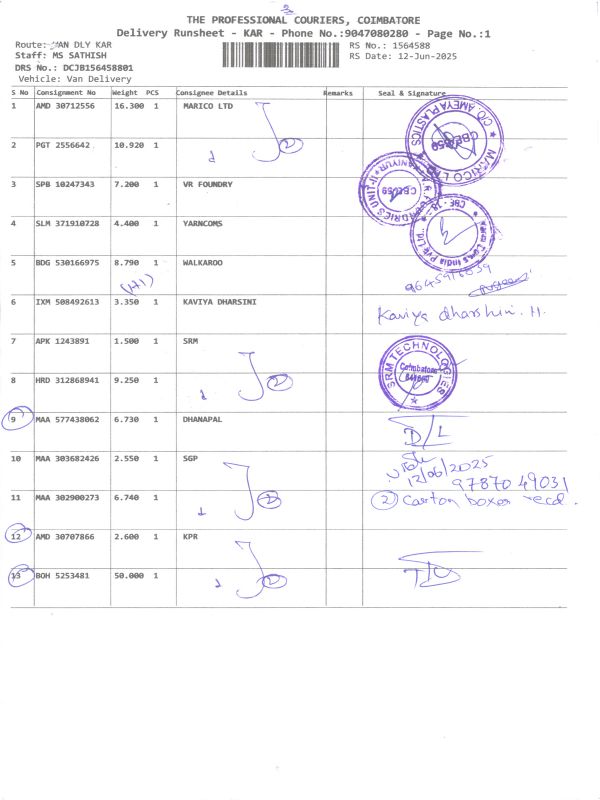 THE PROFESSIONAL COURIERS, COIMBATORE
Delivery Runsheet - KAR - Phone No.:9047080280 - Page No.:1
Route: VAN DLY KAR RS No.: 1564588
Staff: MS SATHISH RS Date: 12-Jun-2025
DRS No.: DCJB156458801
Vehicle: Van Delivery
S No Consignment No Weight PCS Consignee Details Remarks Seal & Signature
1 AMD 30712556 16.300 1 MARICO LTD
C/O. AMEYA PLASTICS
MARICO
2 PGT 2556642 10.920 1
2
3 SPB 10247343 7.200 1 VR FOUNDRY
4 SLM 371910728 4.400 1 YARNCOMS
5 BDG 530166975 8.790 1 WALKAROO
6 IXM 508492613 3.350 1 KAVIYA DHARSINI Kaviya dharshini. H.
7 APK 1243891 1.500 1 SRM
SRM TECHNOLOGIES
Coimbatore
8 HRD 312868941 9.250 1
2
9 MAA 577438062 6.730 1 DHANAPAL D/L
10 MAA 303682426 2.550 1 SGP
12/06/2025
97870 49031
11 MAA 302900273 6.740 1 2 Carton boxes recd.
2
12 AMD 30707866 2.600 1 KPR
13 BOH 5253481 50.000 1
2